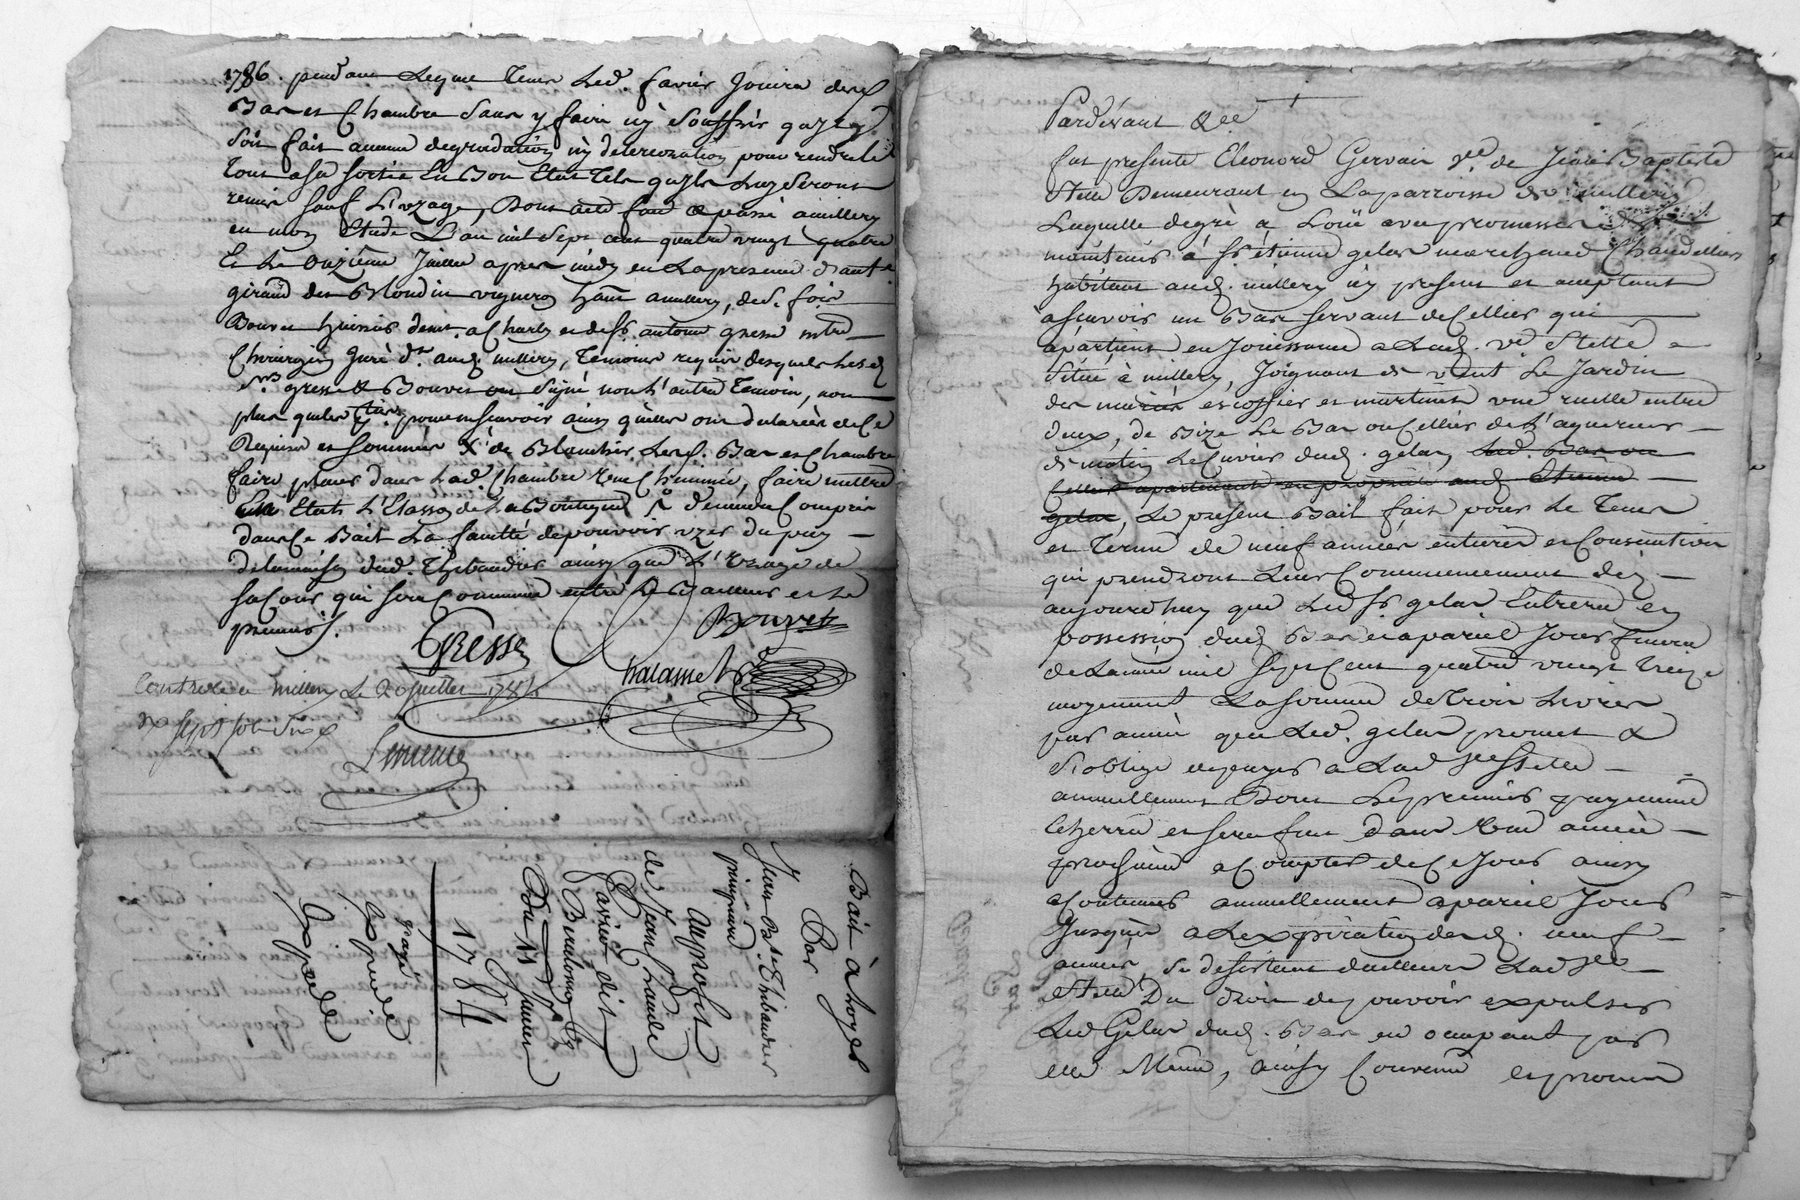 1786. pendant lequel tems led. favier Jouira desd.
Bas et Chambre sans y faire ny souffrir qu'il y
soit fait aucune degradation ny deterioration pour rendre le
tout a sa sortie en Bon Etat tels qu'ils luy seront
remis sauf L'uzage, Dont acte fait & passé a millery
en mon Etude L'an mil sept cent quatre vingt quatre
Et Le onzieme Juillet après midy en la presence d'ant.e
giraud dit Blondin vigneron hant a millery, de S. foix
Bouvet huissier demt. a Charly et de Sr. antoine gresse mtre
Chirurgien Juré dt. aud. millery, temoins requis desquels lesd.
Srs gresse & Bouvet ont signé non l'autre temoin, non
plus que les pties pour ne sçavoir ainsy qu'elles ont declaré de Ce
Requises et sommées de Blanchir lesd. Bas et Chambre
faire placer dans lad. Chambre une Cheminée, faire mettre
en Etat de la Boutique demeure Compris
dans Ce Bail La faculté de pouvoir uzer du puy
de la maison dud. Thibaudier ainsy que L'uzage de
sa Cour qui sera Commune entre le Bailleur et Le
preneur.
GRESSE
Bouvet
Chalasset
Controlé a millery Le 20 Juillet 1784
Rx sept sols Six d
Bail à Loyer
Par
Jean Bte. Thibaudier
Au profit
de Jean Claude
favier dit
Du 11 Juillet
1784
Expedié
Expedié
Pardevant &ce
fut presente Eleonord Gervais ve. de Jean Baptiste
Stelle Demeurant en La parroisse de millery
Laquelle de gré a Loüé avec promesse de
maintenir à Sr. étienne gelas marchand Chandellier
habitant aud. millery icy present et acceptant
à sçavoir un Bas servant de Cellier qui
apartient en Jouissance a Lad. ve. Stelle
Situé à millery, Joignant de vent Le Jardin
des mariés escoffier et martinet une ruelle entre
deux, de Bize Le Bas ou Cellier de l'aquereur
de matin Le Cuvier dud. gelas, Lad. Bas ou
Cellier apartenant en proprieté aud. Etienne
gelas, Le present Bail fait pour Le tems
et terme de neuf années entieres et Consecutives
qui prendront Leur Commencement dez
aujourd'huy que Led. Sr. gelas Entrera en
possession dud. Bas et a pareil Jour finira
de L'année mil sept Cent quatre vingt treize
moyennant La somme de trois Livres
par année que Led. gelas promet &
s'oblige de payer a Lad. ve. Stelle
annuellement Dont Le premier payement
Echerra et sera fait dans une année
prochaine a Compter de Ce Jour ainsy
Continuer annuellement a pareil Jour
Jusqu'à L'expiration desd. neuf
années, Se desistant d'ailleurs Lad. ve.
Stelle Du droit de pouvoir expulser
Led. Gelas dud. Bas en occupant par
elle Même, ainsy Convenu et promis